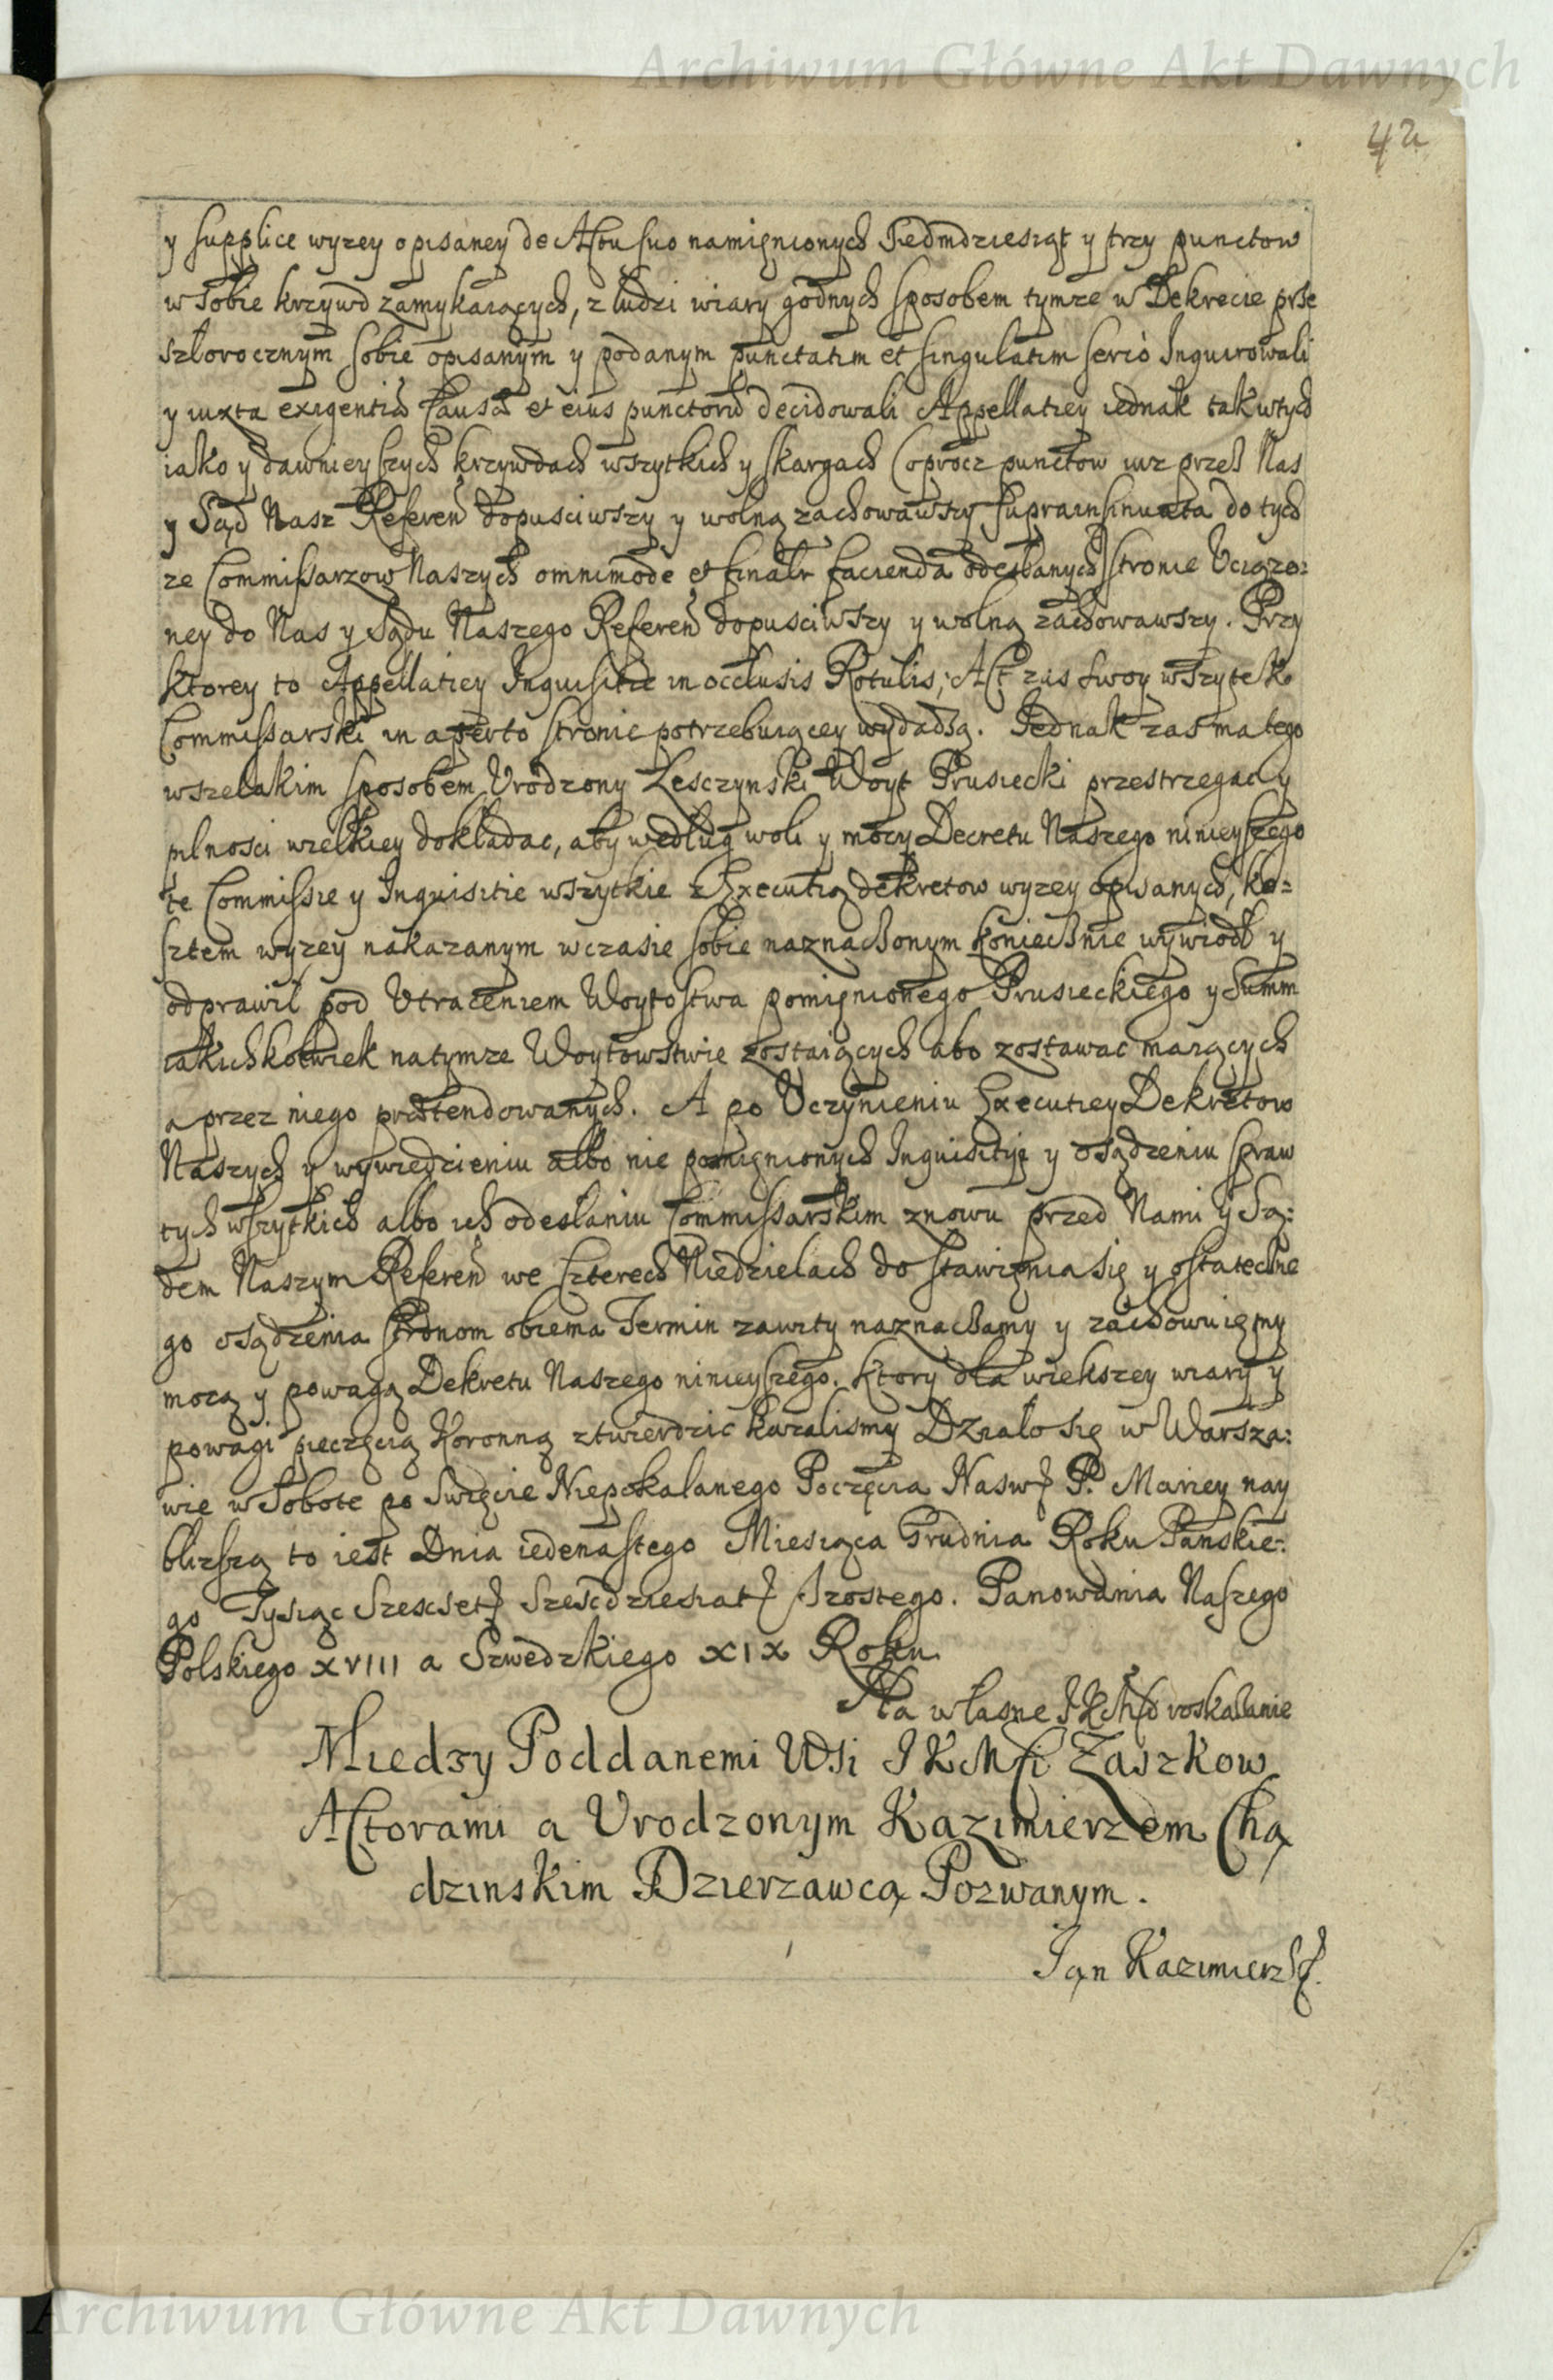 Archiwum Główne Akt Dawnych
42
y supplice wyzey opisaney de namięnionych Siedmdziesiąt y trzy punctow
w sobie krzywd zamykaiących, z ludzi wiary godnych sposobem tymze w Dekrecie prze
szłorocznym sobie opisanym y podanym punctatim et singulatim serio Inquirowali
y iuxta exigentiã Causæ et eius punctorũ decidowali Appellatiey iednak tak w tych
iako y dawnieyszych krzywdach wszytkich y skargach (oprocz punctow iuz przez Nas
y Sąd Nasz Referen dopusciwszy y wolną zachowawszy suprainsinuata do tych
ze Commissarzow Naszych omnimode et finalr facienda odesłanych) stronie Uciązo:
ney do Nas y Sądu Naszego Referen dopusciwszy y wolną zachowawszy. Przy
ktorey to Appellatiey Inquisitie in occlusis Rotulis, Act zas swoy wszytek
Commissarski in aperto stronie potrzebuiącey wydadzą. Jednak zas ma tego
wszelakim sposobem Urodzony Lesczynski Woyt Prusiecki przestrzegac y
pilnosci wielkiey dokładac, aby według woli y mocy Decretu Naszego ninieyszego
te Commissie y Inquisitie wszytkie z Executią dekretow wyzey opisanych, ko=
sztem wyzey nakazanym w czasie sobie naznaczonym koniecznie wywiodł y
odprawił pod Utraceniem Woytostwa pomięnionego Prusieckiego y Summ
iakichkolwiek na tymze Woytowstwie zostaiących abo zostawac maiących
a przez niego prætendowanych. A po Uczynieniu Executiey Dekretow
Naszych y wywiedzieniu albo nie pomięnionych Inquisityi y osądzeniu spraw
tych wszytkich albo ich odesłaniu Commissarskim znowu przed Nami y Są:
dem Naszym Referen we czterech Niedzielach do stawięnia się y ostateczne
go osądzenia stronom obiema Termin zawity naznaczamy y zachowuięmy
mocą y powagą Dekretu Naszego ninieyszego. Ktory dla wiekszey wiary y
powagi pieczęcią Koronną ztwierdzic kazalismy Działo się w Warsza:
wie w Sobote po Swięcie Niepokalanego Poczęcia Nasw: P. Mariey nay
blizszą to iest Dnia iedenastego Miesiąca Grudnia Roku Panskie:
go Tysiąc Szescset Szescdziesiat szostego. Panowania Naszego
Polskiego XVIII a Szwedzkiego XIX Roku.
Na własne JKMsci roskazanie
Miedzy Poddanemi Wsi JKMsci Zaszkow
Actorami a Urodzonym Kazimierzem Chą
dzinskim Dzierzawcą Pozwanym.
Jan Kazimierz
Archiwum Główne Akt Dawnych